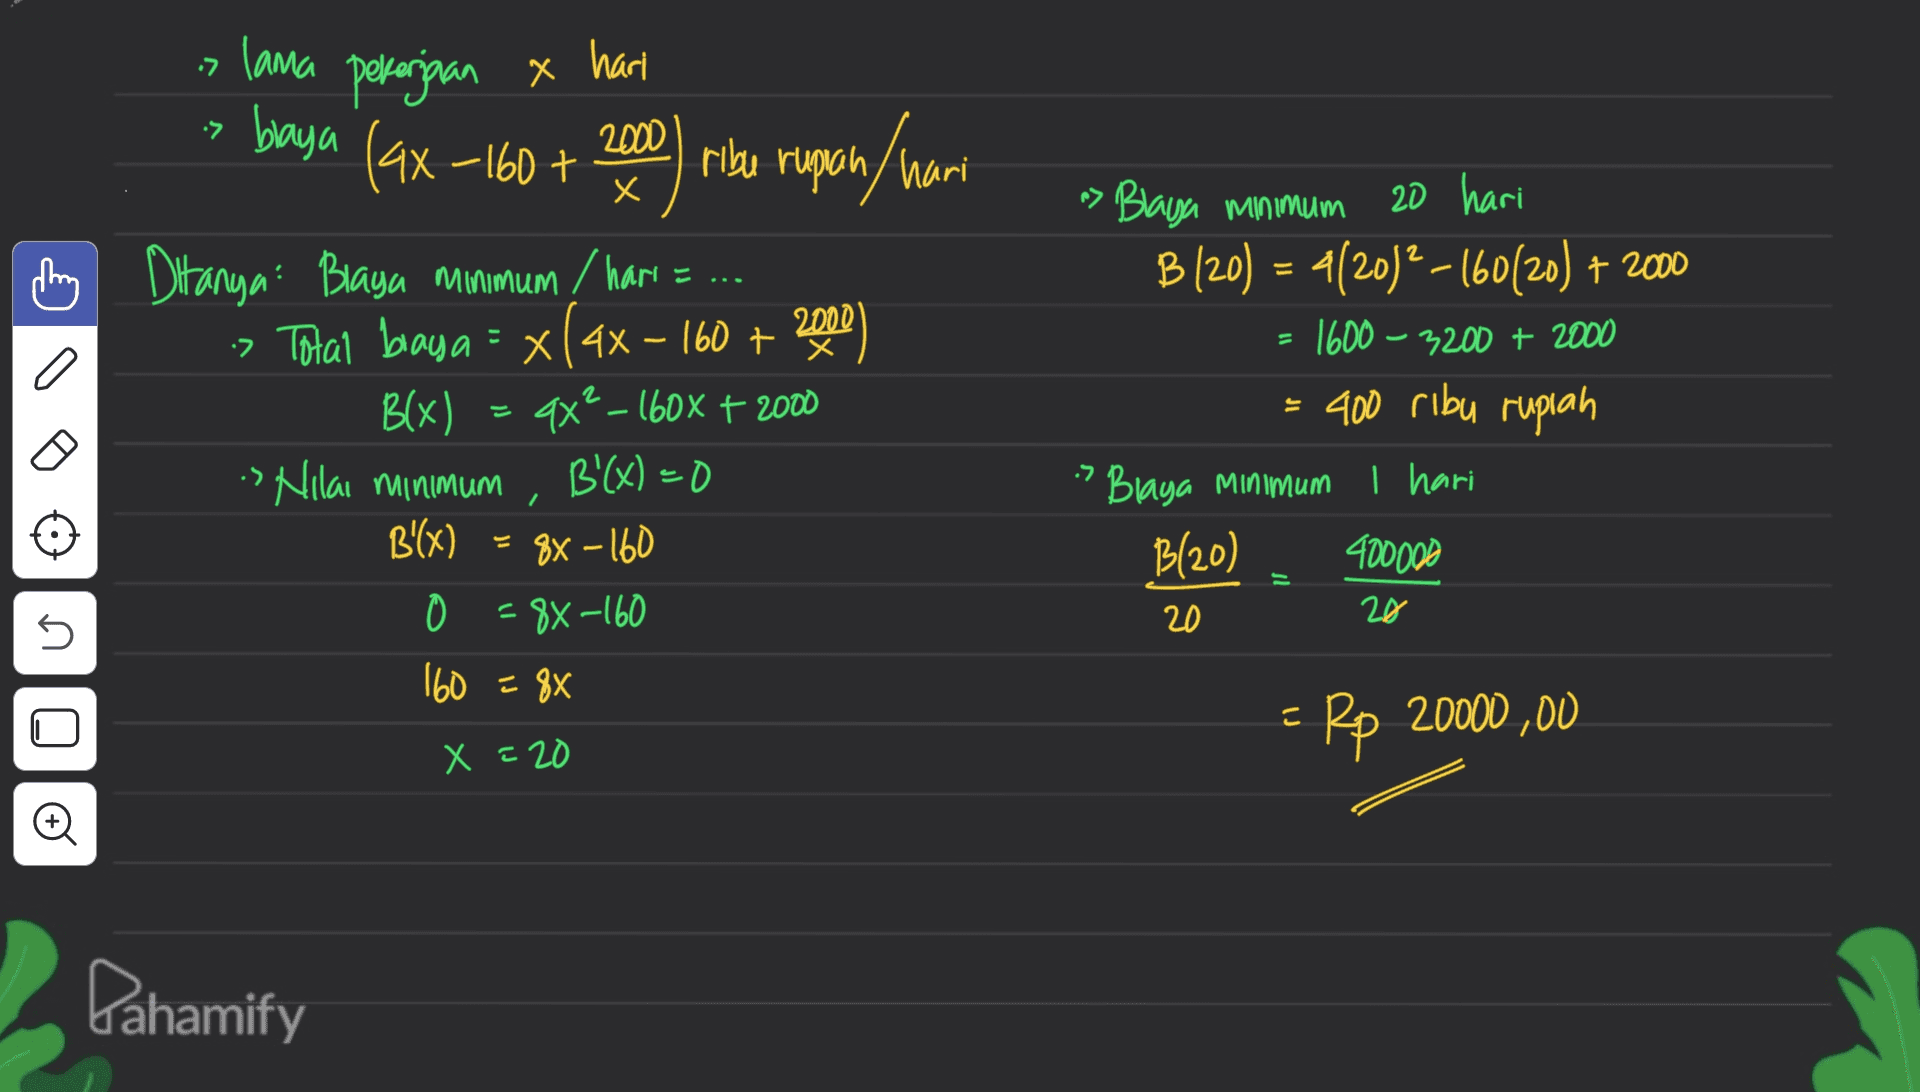 .> lama pekerjaan x hari
.> biaya (4x - 160 + 2000/x) ribu rupiah/hari
Ditanya: Biaya minimum / hari = ...
.> Total biaya = x(4x - 160 + 2000/x)
B(x) = 4x² - 160x + 2000
.> Nilai minimum, B'(x) = 0
B'(x) = 8x - 160
0 = 8x - 160
160 = 8x
x = 20
.> Biaya minimum 20 hari
B(20) = 4(20)² - 160(20) + 2000
= 1600 - 3200 + 2000
= 400 ribu rupiah
.> Biaya minimum 1 hari
B(20)/20 = 400000/20
= Rp 20000,00
Pahamify